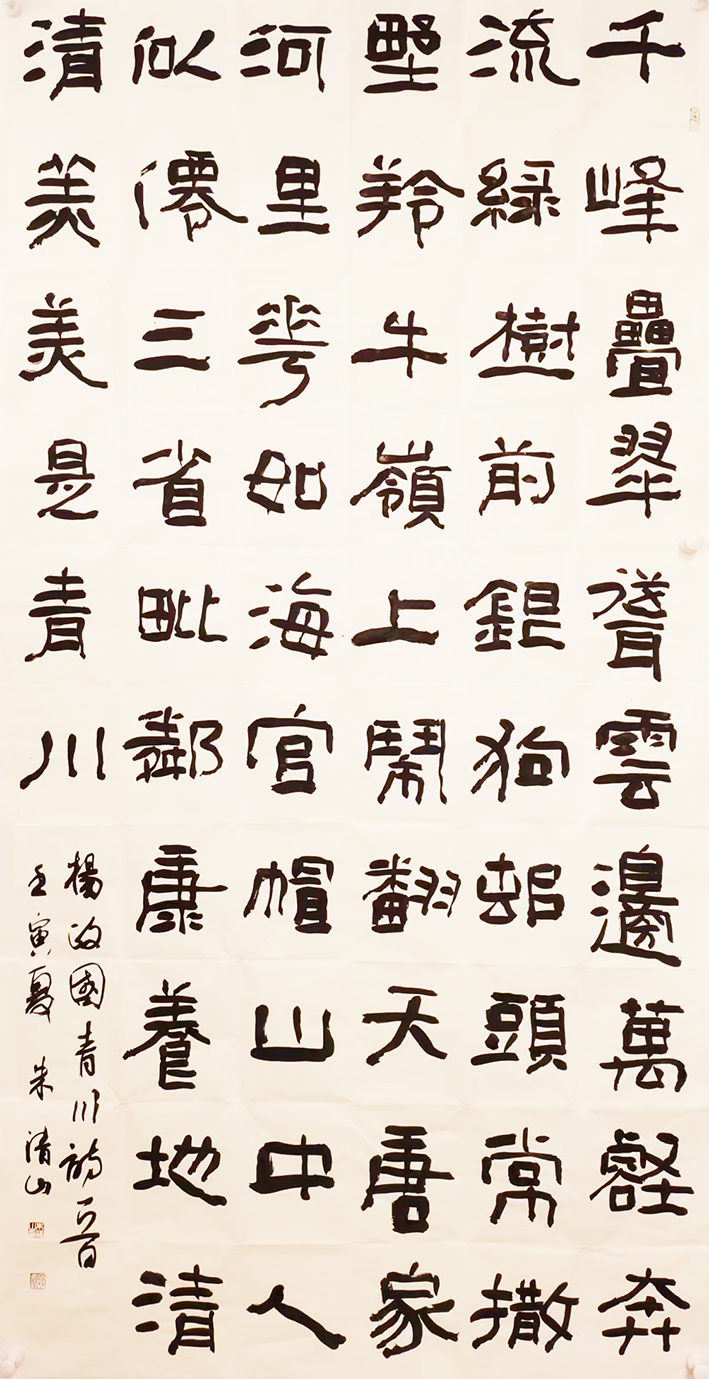 千峰疊翠聳雲邊萬壑奔
流綠樹前銀狗邨頭常撒
墅羚牛嶺上鬧翻天唐家
河里花如海官帽山中人
似僊三省毗鄰康養地清
清羙美是青川
楊政國青川詩一首
壬寅夏 朱清山